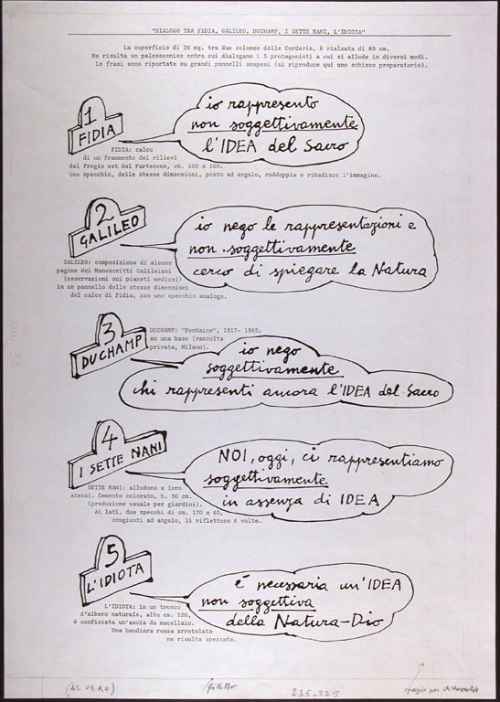 "DIALOGO TRA FIDIA, GALILEO, DUCHAMP, I SETTE NANI, L'IDIOTA"
La superficie di 36 mq. tra due colonne delle Corderie, è rialzata di 40 cm.
Ne risulta un palcoscenico entro cui dialogano i 5 protagonisti a cui si allude in diversi modi.
Le frasi sono riportate su grandi pannelli sospesi (si riproduce qui uno schizzo preparatorio).
1
FIDIA
io rappresento
non soggettivamente
l'IDEA del Sacro
FIDIA: calco
di un frammento dei rilievi
del fregio est del Partenone, cm. 100 x
Uno specchio, delle stesse dimensioni, posto ad angolo, raddoppia e ribadisce l'immagine.
2
GALILEO
io nego le rappresentazioni e
non soggettivamente
cerco di spiegare la Natura
GALILEO: composizione di alcune
pagine dei Manoscritti Galileiani
(osservazioni sui pianeti medicei)
in un pannello delle stesse dimensioni
del calco di Fidia, con uno specchio analogo.
3
DUCHAMP
DUCHAMP: "Fontaine", 1917-
su una base (raccolta
privata, Milano).
io nego
soggettivamente
chi rappresenti ancora l'IDEA del Sacro
4
I SETTE NANI
NOI, oggi, ci rappresentiamo
soggettivamente
in assenza di IDEA
SETTE NANI: alludono a loro
stessi. Cemento colorato, h. 50 cm.
(produzione usuale per giardini).
Ai lati, due specchi di cm. 170 x 60,
congiunti ad angolo, li riflettono 6 volte.
5
L'IDIOTA
è necessaria un'IDEA
non soggettiva
della Natura-Dio
L'IDIOTA: in un tronco
d'albero naturale, alto cm.
è conficcata un'ascia da macellaio.
Una bandiera rossa arrotolata
ne risulta spezzata.
(AL VERO)